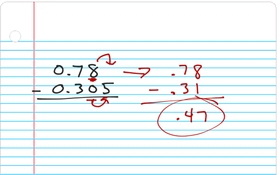 0.78 → .78
- 0.305 - .31
.47